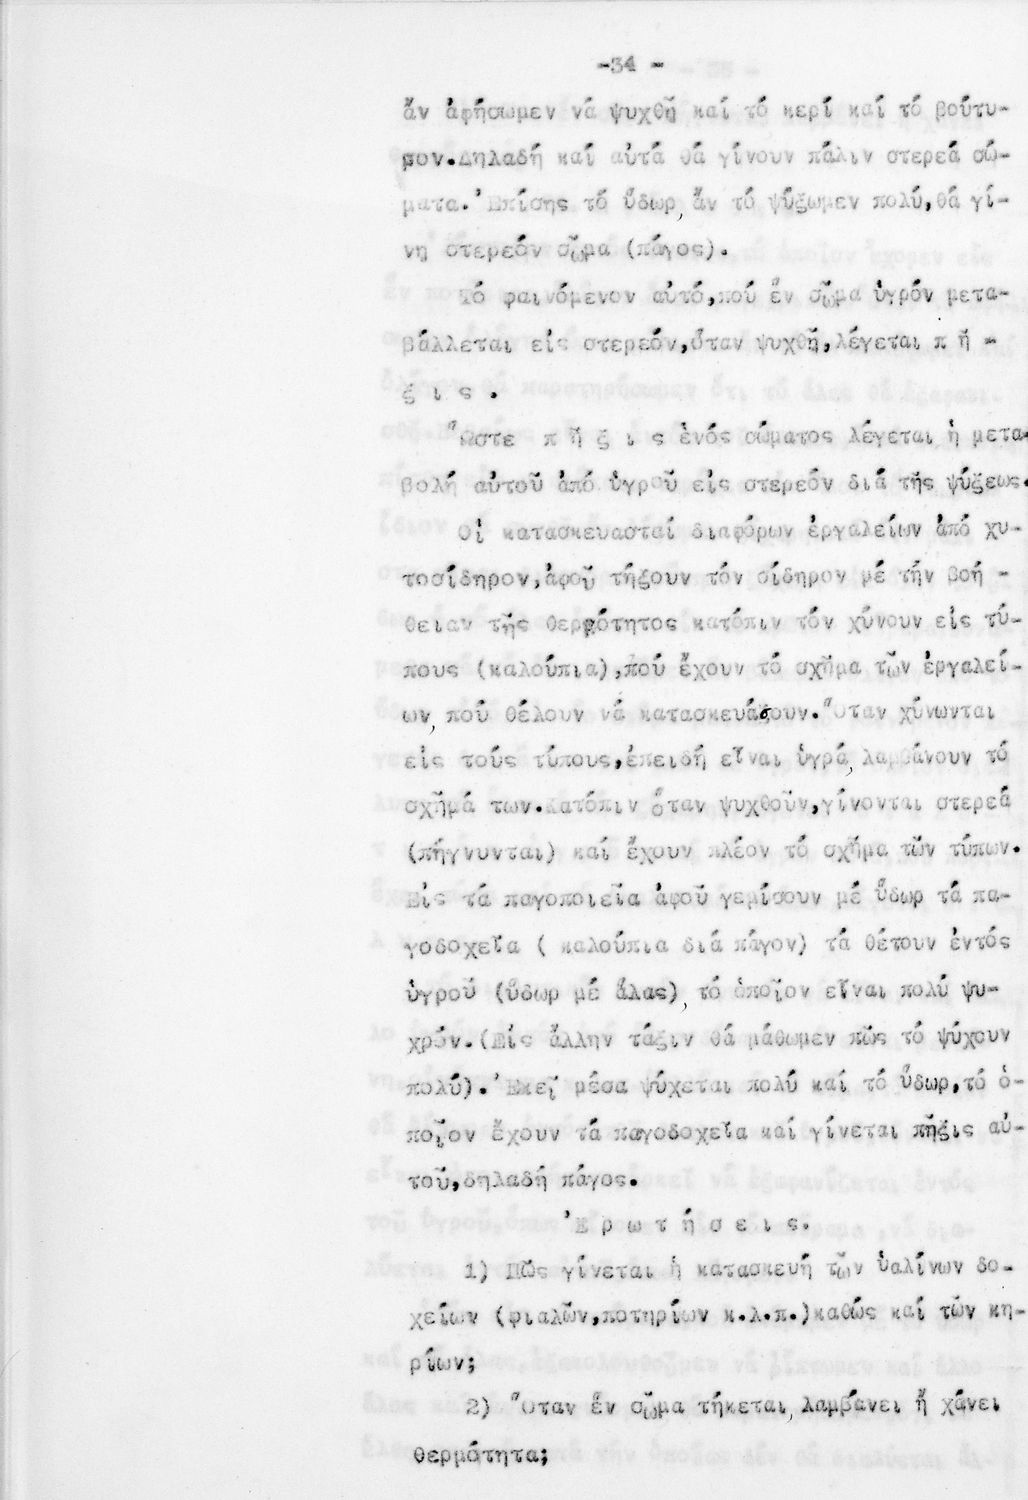 -34 -
ἄν ἀφήσωμεν νά ψυχθῇ καί τό κερί καί τό βούτυ-
ρον.Δηλαδή καί αὐτά θά γίνουν πάλιν στερεά σώ-
ματα.Ἐπίσης τό ὕδωρ, ἄν τό ψύξωμεν πολύ,θά γί-
νῃ στερεόν σῶμα (πάγος).
Τό φαινόμενον αὐτό,πού ἕν σῶμα ὑγρόν μετα-
βάλλεται εἰς στερεόν,ὅταν ψυχθῇ,λέγεται π ῆ -
ξ ι ς .
Ὥστε π ῆ ξ ι ς ἑνός σώματος λέγεται ἡ μετα-
βολή αὐτοῦ ἀπό ὑγροῦ εἰς στερεόν διά τῆς ψύξεως.
Οἱ κατασκευασταί διαφόρων ἐργαλείων ἀπό χυ-
τοσίδηρον,ἀφοῦ τήξουν τόν σίδηρον μέ τήν βοή -
θειαν τῆς θερμότητος κατόπιν τόν χύνουν εἰς τύ-
πους (καλούπια),πού ἔχουν τό σχῆμα τῶν ἐργαλεί-
ων, πού θέλουν νά κατασκευάσουν.Ὅταν χύνωνται
εἰς τούς τύπους,ἐπειδή εἶναι ὑγρά, λαμβάνουν τό
σχῆμά των.Κατόπιν ὅταν ψυχθοῦν,γίνονται στερεά
(πήγνυνται) καί ἔχουν πλέον τό σχῆμα τῶν τύπων.
Εἰς τά παγοποιεῖα ἀφοῦ γεμίσουν μέ ὕδωρ τά πα-
γοδοχεῖα ( καλούπια διά πάγον) τά θέτουν ἐντός
ὑγροῦ (ὕδωρ μέ ἅλας), τό ὁποῖον εἶναι πολύ ψυ-
χρόν.(Εἰς ἄλλην τάξιν θά μάθωμεν πῶς τό ψύχουν
πολύ).Ἐκεῖ μέσα ψύχεται πολύ καί τό ὕδωρ,τό ὁ-
ποῖον ἔχουν τά παγοδοχεῖα καί γίνεται πῆξις αὐ-
τοῦ,δηλαδή πάγος.
Ἐ ρ ω τ ή σ ε ι ς .
1) Πῶς γίνεται ἡ κατασκευή τῶν ὑαλίνων δο-
χείων (φιαλῶν,ποτηρίων κ.λ.π.)καθώς καί τῶν κη-
ρίων;
2) Ὅταν ἕν σῶμα τήκεται, λαμβάνει ἤ χάνει
θερμότητα;